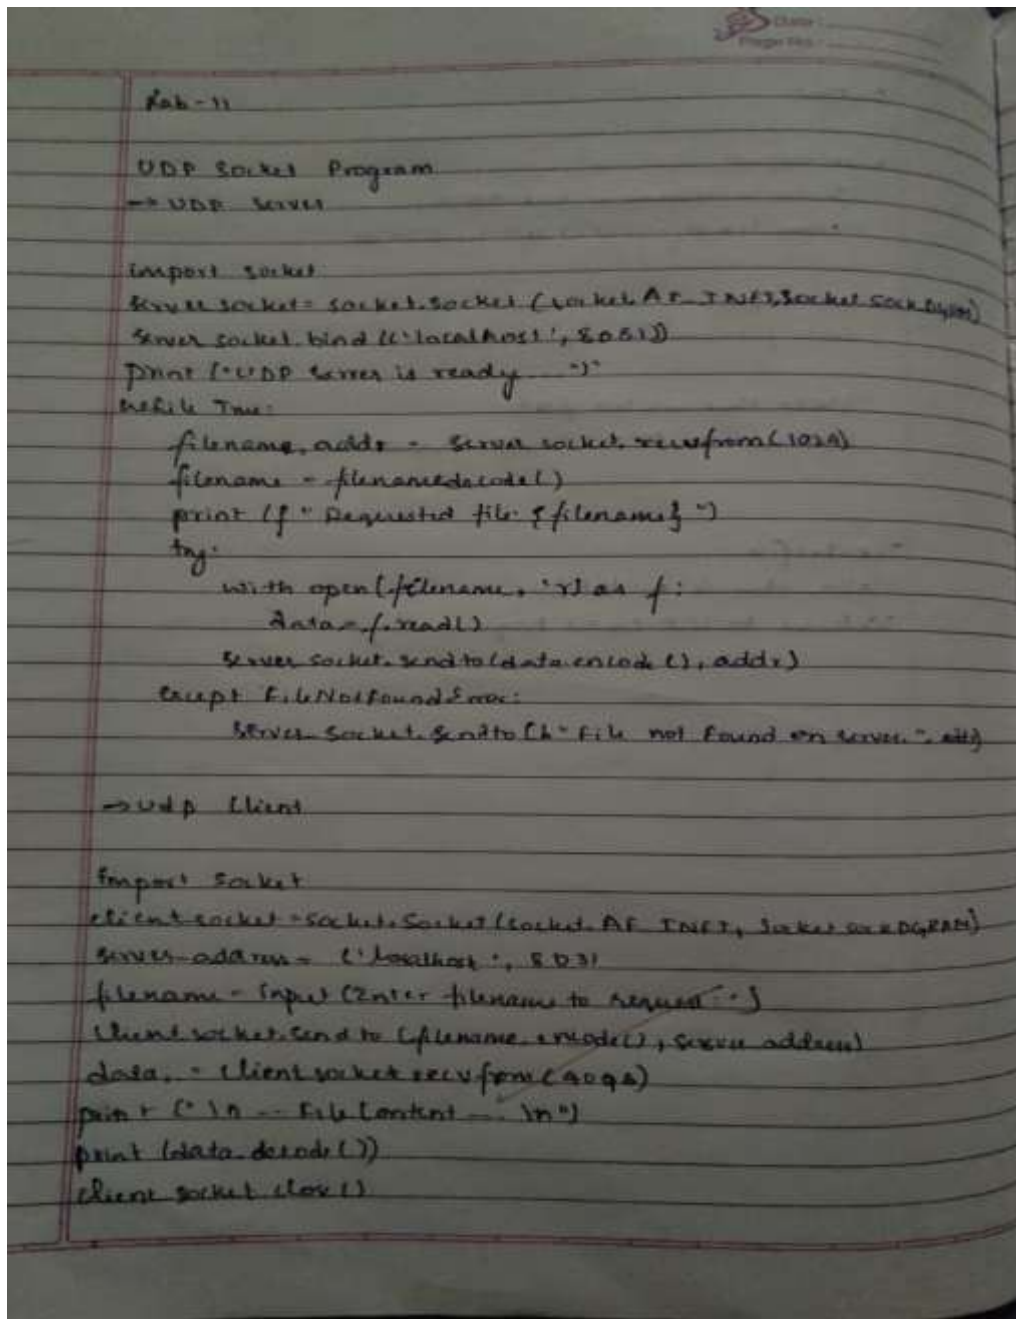 Date :
Page No. :
Lab - 11
UDP Socket Program
→ UDP Server
import socket
server socket = socket.socket (socket. AF_INET, socket SOCK DGRAM)
server socket. bind (('localhost', 8081))
print ("UDP Server is ready ... ")"
while True:
filename, addr = server socket. recvfrom (1024)
filename = filenamedecode()
print (f " Requested file: {filename} ")
try:
with open (filename, 'r) as f:
data = f.read()
server socket. sendto (data.encode (), addr)
except FileNotFoundError:
server_socket. sendto (b" File not found on server. ", addr)
→ udp Client
import socket
client socket = socket. socket (socket. AF_INET, socket SOCK DGRAM)
server_address = ('localhost', 8031
filename = input (Enter filename to request : ")
client socket. send to (filename. encode(), server address)
data, = client socket recvfrom (4096)
print (" \n -- File Content --- \n")
print (data. decode ())
client socket close ()